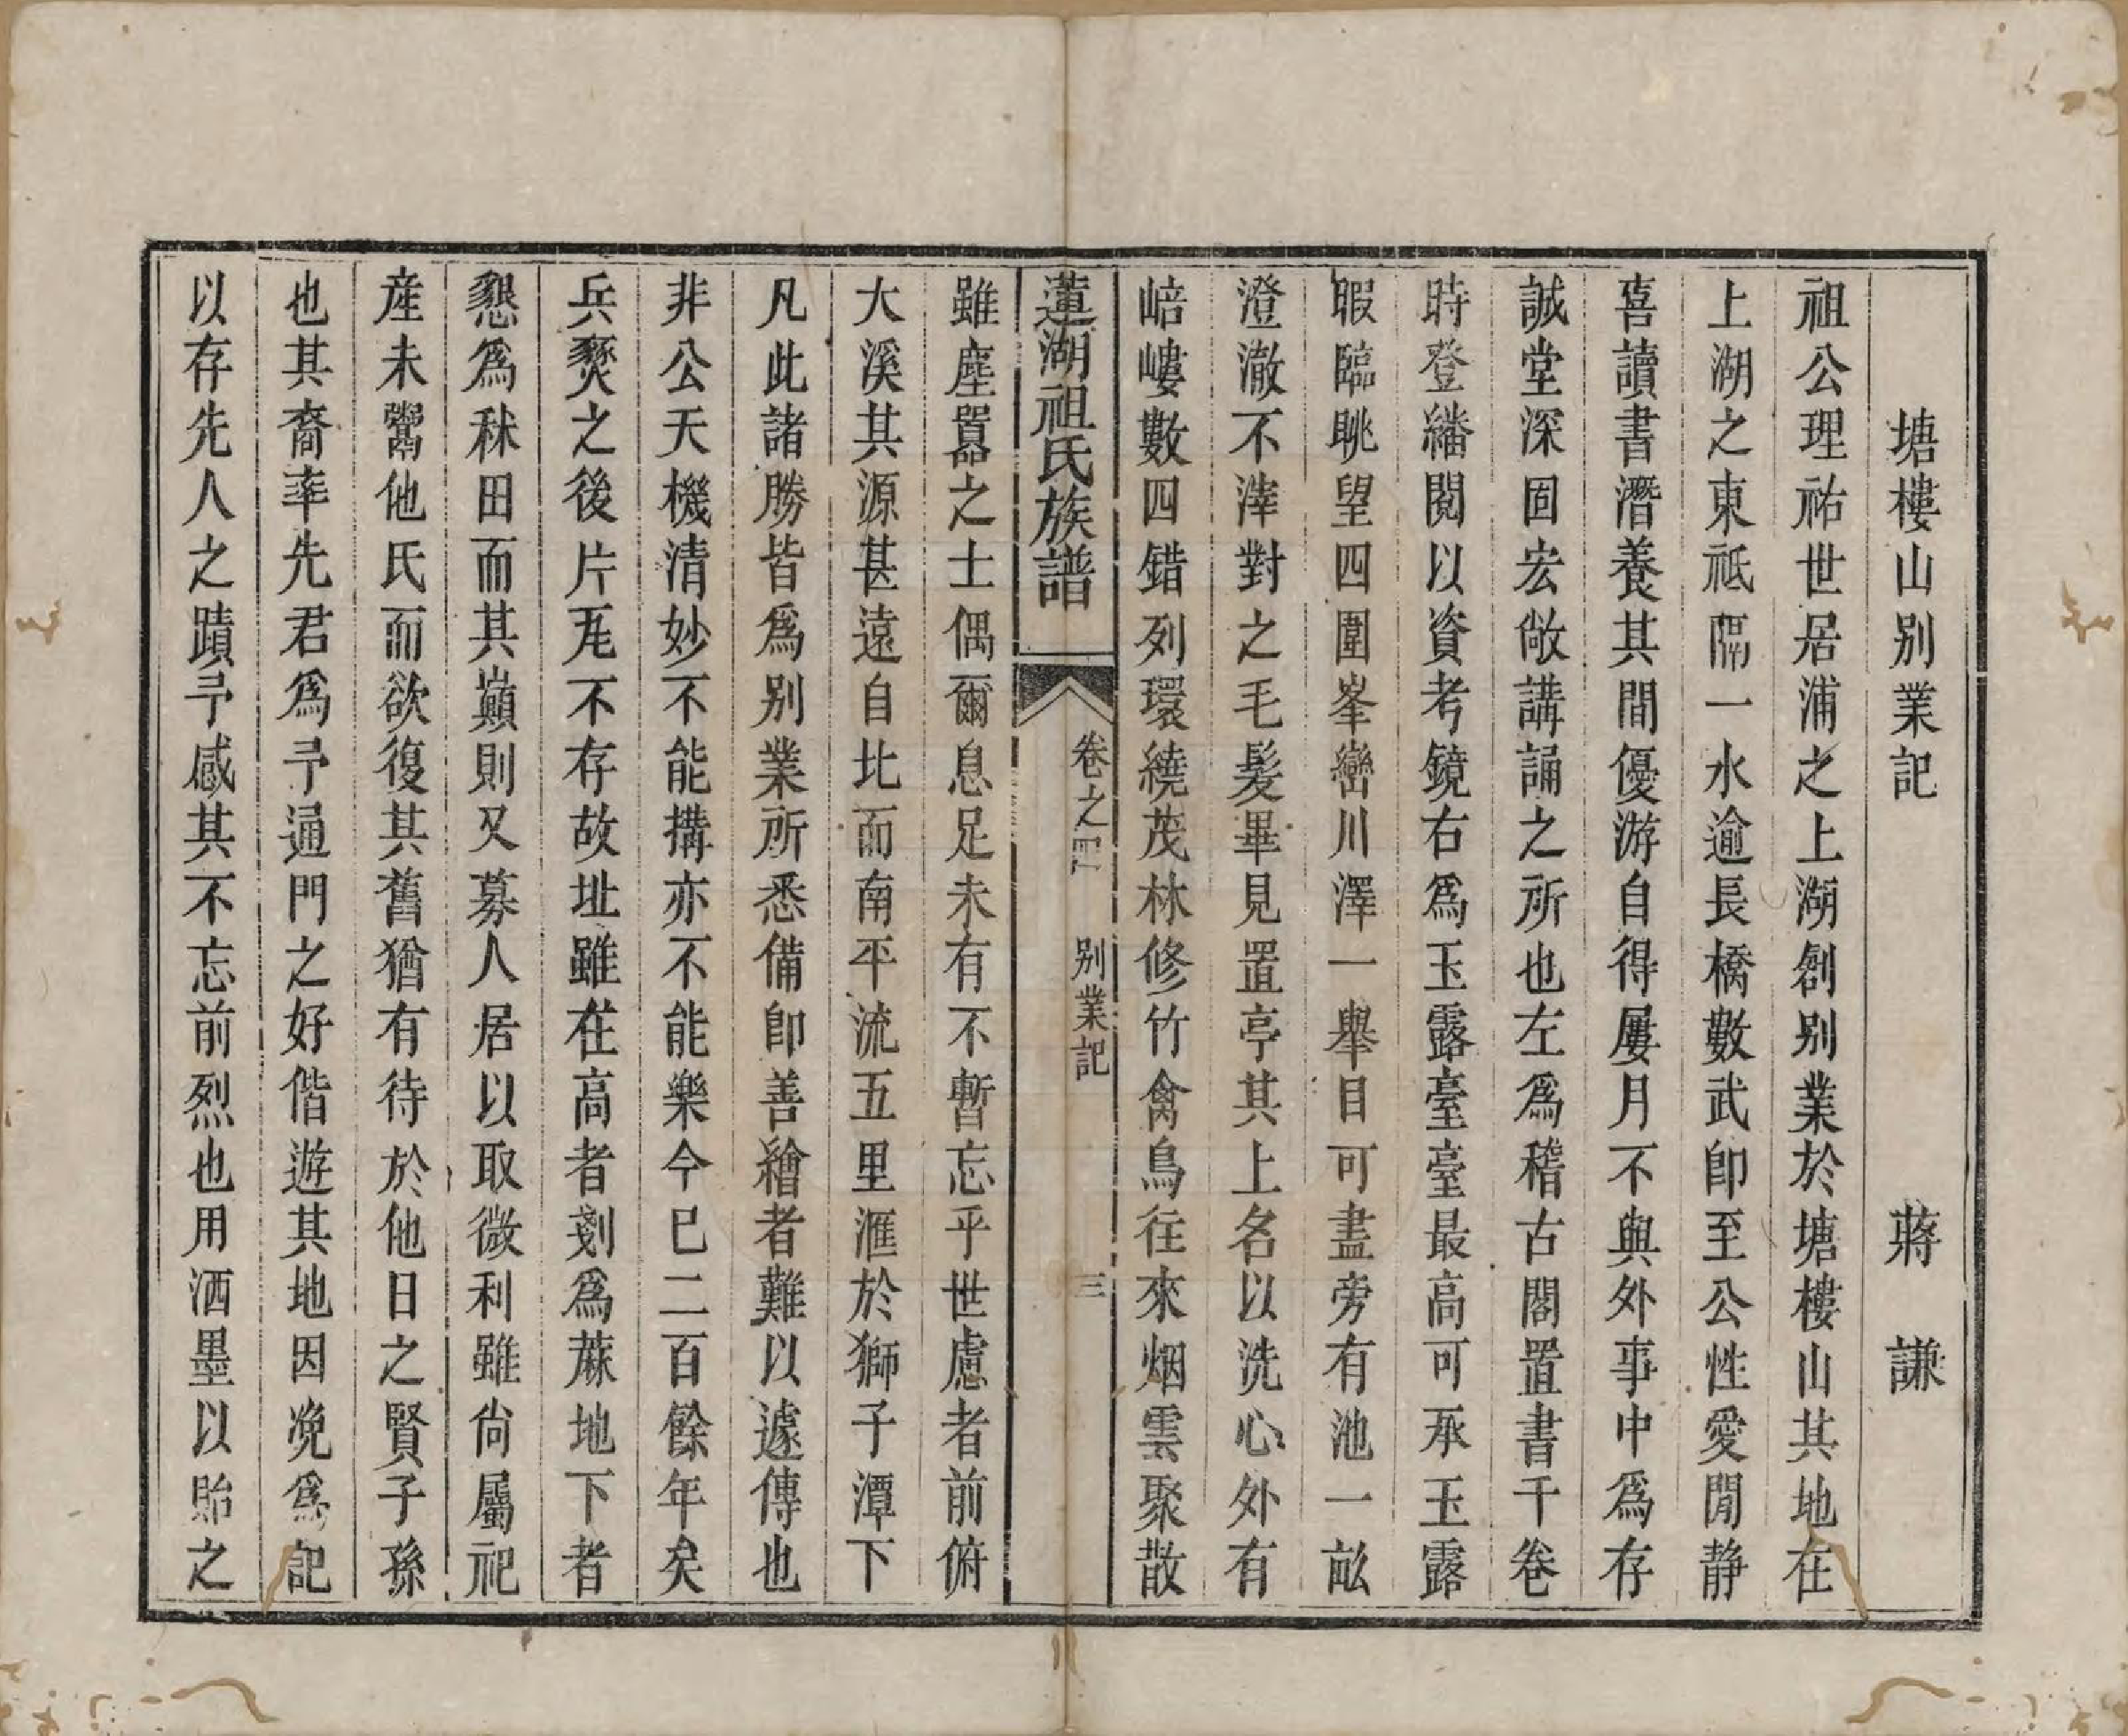 塘樓山别業記　蔣謙
祖公理祐世居浦之上湖創别業於塘樓山其地在
上湖之東祗隔一水逾長橋數武卽至公性愛閒静
喜讀書潛養其間優游自得屢月不與外事中爲存
誠堂深固宏敞講誦之所也左爲稽古閣置書千卷
時登繙閱以資考鏡右爲玉露臺臺最高可承玉露
暇臨眺望四圍峯巒川澤一舉目可盡旁有池一畝
澄澈不滓對之毛髮畢見置亭其上名以洗心外有
㟝嶁數四錯列環繞茂林修竹禽鳥往來烟雲聚散
蓮湖祖氏族譜　卷之四　别業記　三
雖塵囂之士偶爾息足未有不暫忘乎世慮者前俯
大溪其源甚遠自北而南平流五里滙於獅子潭下
凡此諸勝皆爲别業所悉備卽善繪者難以遽傳也
非公天機清妙不能搆亦不能樂今已二百餘年矣
兵燹之後片瓦不存故址雖在高者剗爲蔴地下者
懇爲秫田而其巓則又募人居以取微利雖尙屬祀
産未鬻他氏而欲復其舊猶有待於他日之賢子孫
也其裔率先君爲予通門之好偕遊其地因浼爲記
以存先人之蹟予感其不忘前烈也用洒墨以貽之